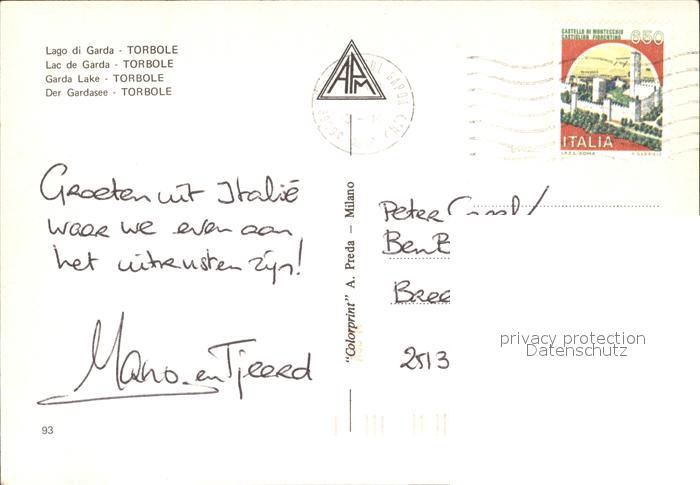 Lago di Garda - TORBOLE
Lac de Garda - TORBOLE
Garda Lake - TORBOLE
Der Gardasee - TORBOLE
APM
CASTELLO DI MONTECCHIO
CASTIGLION FIORENTINO
650
ITALIA
I.P.Z.S. ROMA
Groeten uit Italië
waar we even aan
het uitrusten zijn!
en Tjeerd
93
"Colorprint" A. Preda — Milano
Peter
Ben
2513
privacy protection
Datenschutz